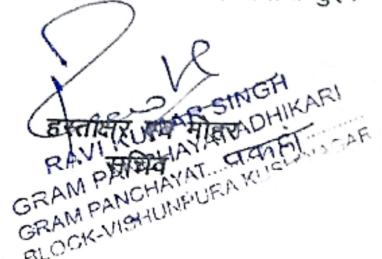 हस्ताक्षर एवं मोहर
सचिव
RAVI KUMAR SINGH
GRAM PANCHAYAT ADHIKARI
GRAM PANCHAYAT....पकहां........
BLOCK-VISHUNPURA KUSHINAGAR